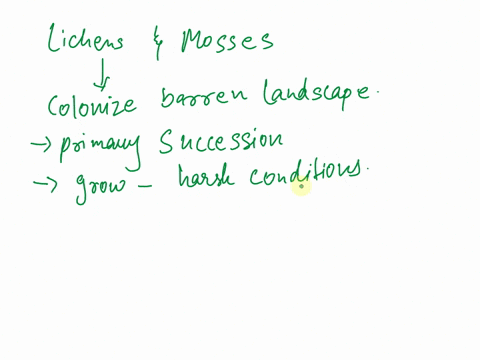 Lichens & Mosses
↓
Colonize barren landscape.
→ primary Succession
→ grow – harsh conditions.